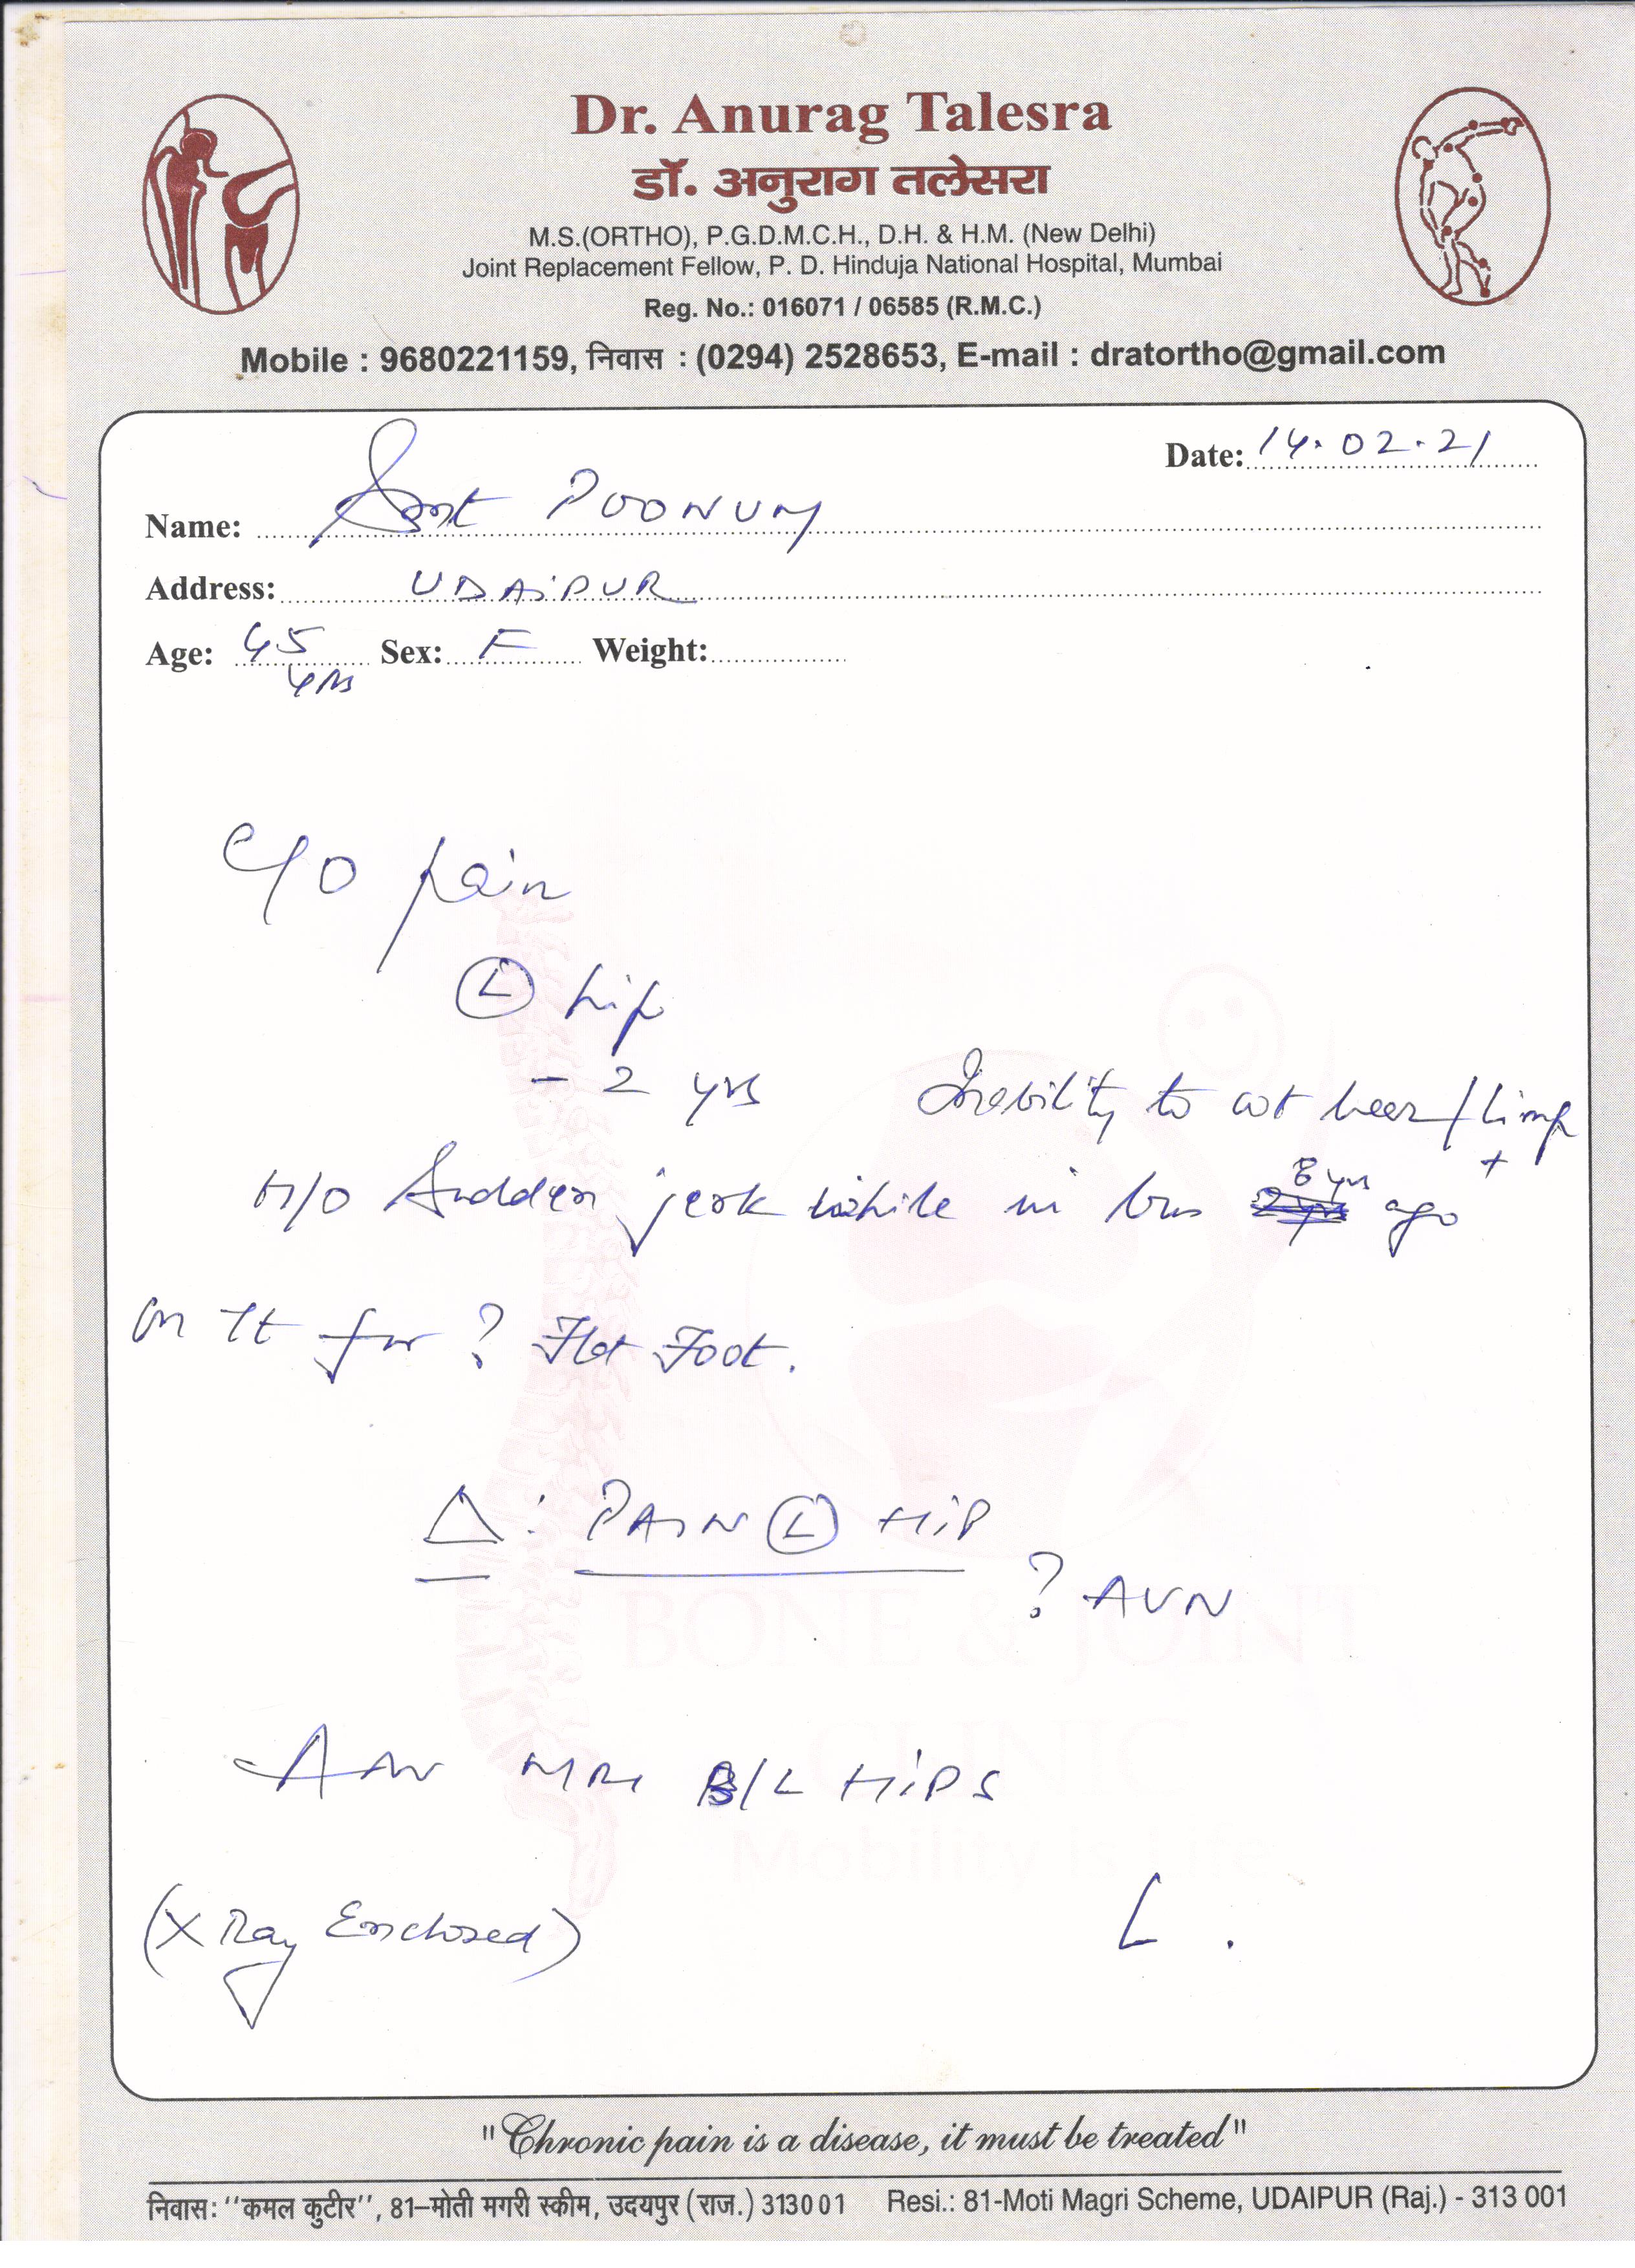 Dr. Anurag Talesra
डॉ. अनुराग तलेसरा
M.S.(ORTHO), P.G.D.M.C.H., D.H. & H.M. (New Delhi)
Joint Replacement Fellow, P. D. Hinduja National Hospital, Mumbai
Reg. No.: 016071 / 06585 (R.M.C.)
Mobile : 9680221159, निवास : (0294) 2528653, E-mail : dratortho@gmail.com
Date: 14.02.21
Name: Smt POONUM
Address: UDAiPUR
Age: 45 yrs Sex: F Weight:
C/O pain
(L) hip
- 2 yrs
Inability to wt bear/limp +
H/O Sudden jerk while in bus 8 yrs ago
on Tt for ? Flat Foot.
Δ: PAIN (L) HiP
? AVN
MRI B/L HiPS
(X Ray Enclosed)
BONE & JOINT
CLINIC
Mobility is Life
"Chronic pain is a disease, it must be treated"
निवास: ''कमल कुटीर'', 81–मोती मगरी स्कीम, उदयपुर (राज.) 313001 Resi.: 81-Moti Magri Scheme, UDAIPUR (Raj.) - 313 001